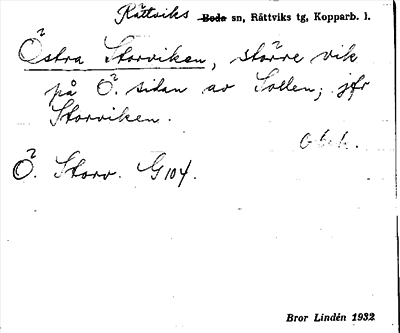 Rättviks ~~Boda~~ sn, Rättviks tg, Kopparb. l.
Östra Storviken, större vik
på Ö. sidan av Sollen; jfr
Storviken.
Obek.
Ö. Storv. G104.
Bror Lindén 1932